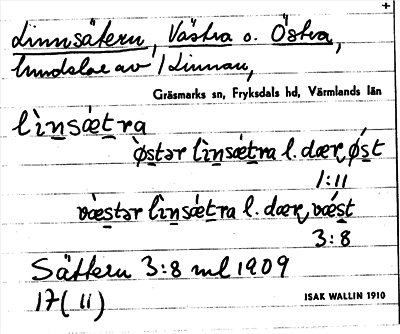 +
Linnsätern, Västra o. Östra,
hundslae av 1 Linnan,
Gräsmarks sn, Fryksdals hd, Värmlands län
lìnsǽtra
ø̀stər lìnsǽtra l. dær øst
1:11
væ̀stər lìnsǽtra l. dær, væst
3:8
Sättern 3:8 ml 1909
17(11)
ISAK WALLIN 1910